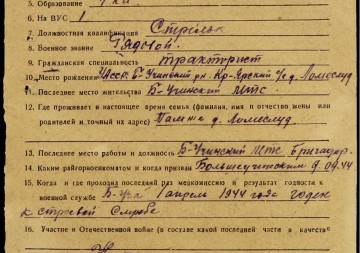 5. Образование 4 кл
6. На ВУС 1
7. Должностная квалификация Стрелок
8. Военное звание Рядовой.
9. Гражданская специальность тракторист
10. Место рождения УАССР Б-Учинский рн Кр-Ярский с/с д. Ломеслуд
11. Последнее место жительства Б-Учинский МТС.
12. Где проживает в настоящее время семья (фамилия, имя и отчество жены или
родителей и точный их адрес) д. Ломеслуд
13. Последнее место работы и должность Б-Учинский МТС бригадир.
14. Каким райгорвоенкоматом и когда призван Большеучинским 9.04.44
15. Когда и где проходил последний раз медкомиссию и результат годности к
военной службе Б-Уча 1 апрель 1944 года годен
к строевой службе
16. Участие в Отечественной войне (в составе какой последней части в качестве